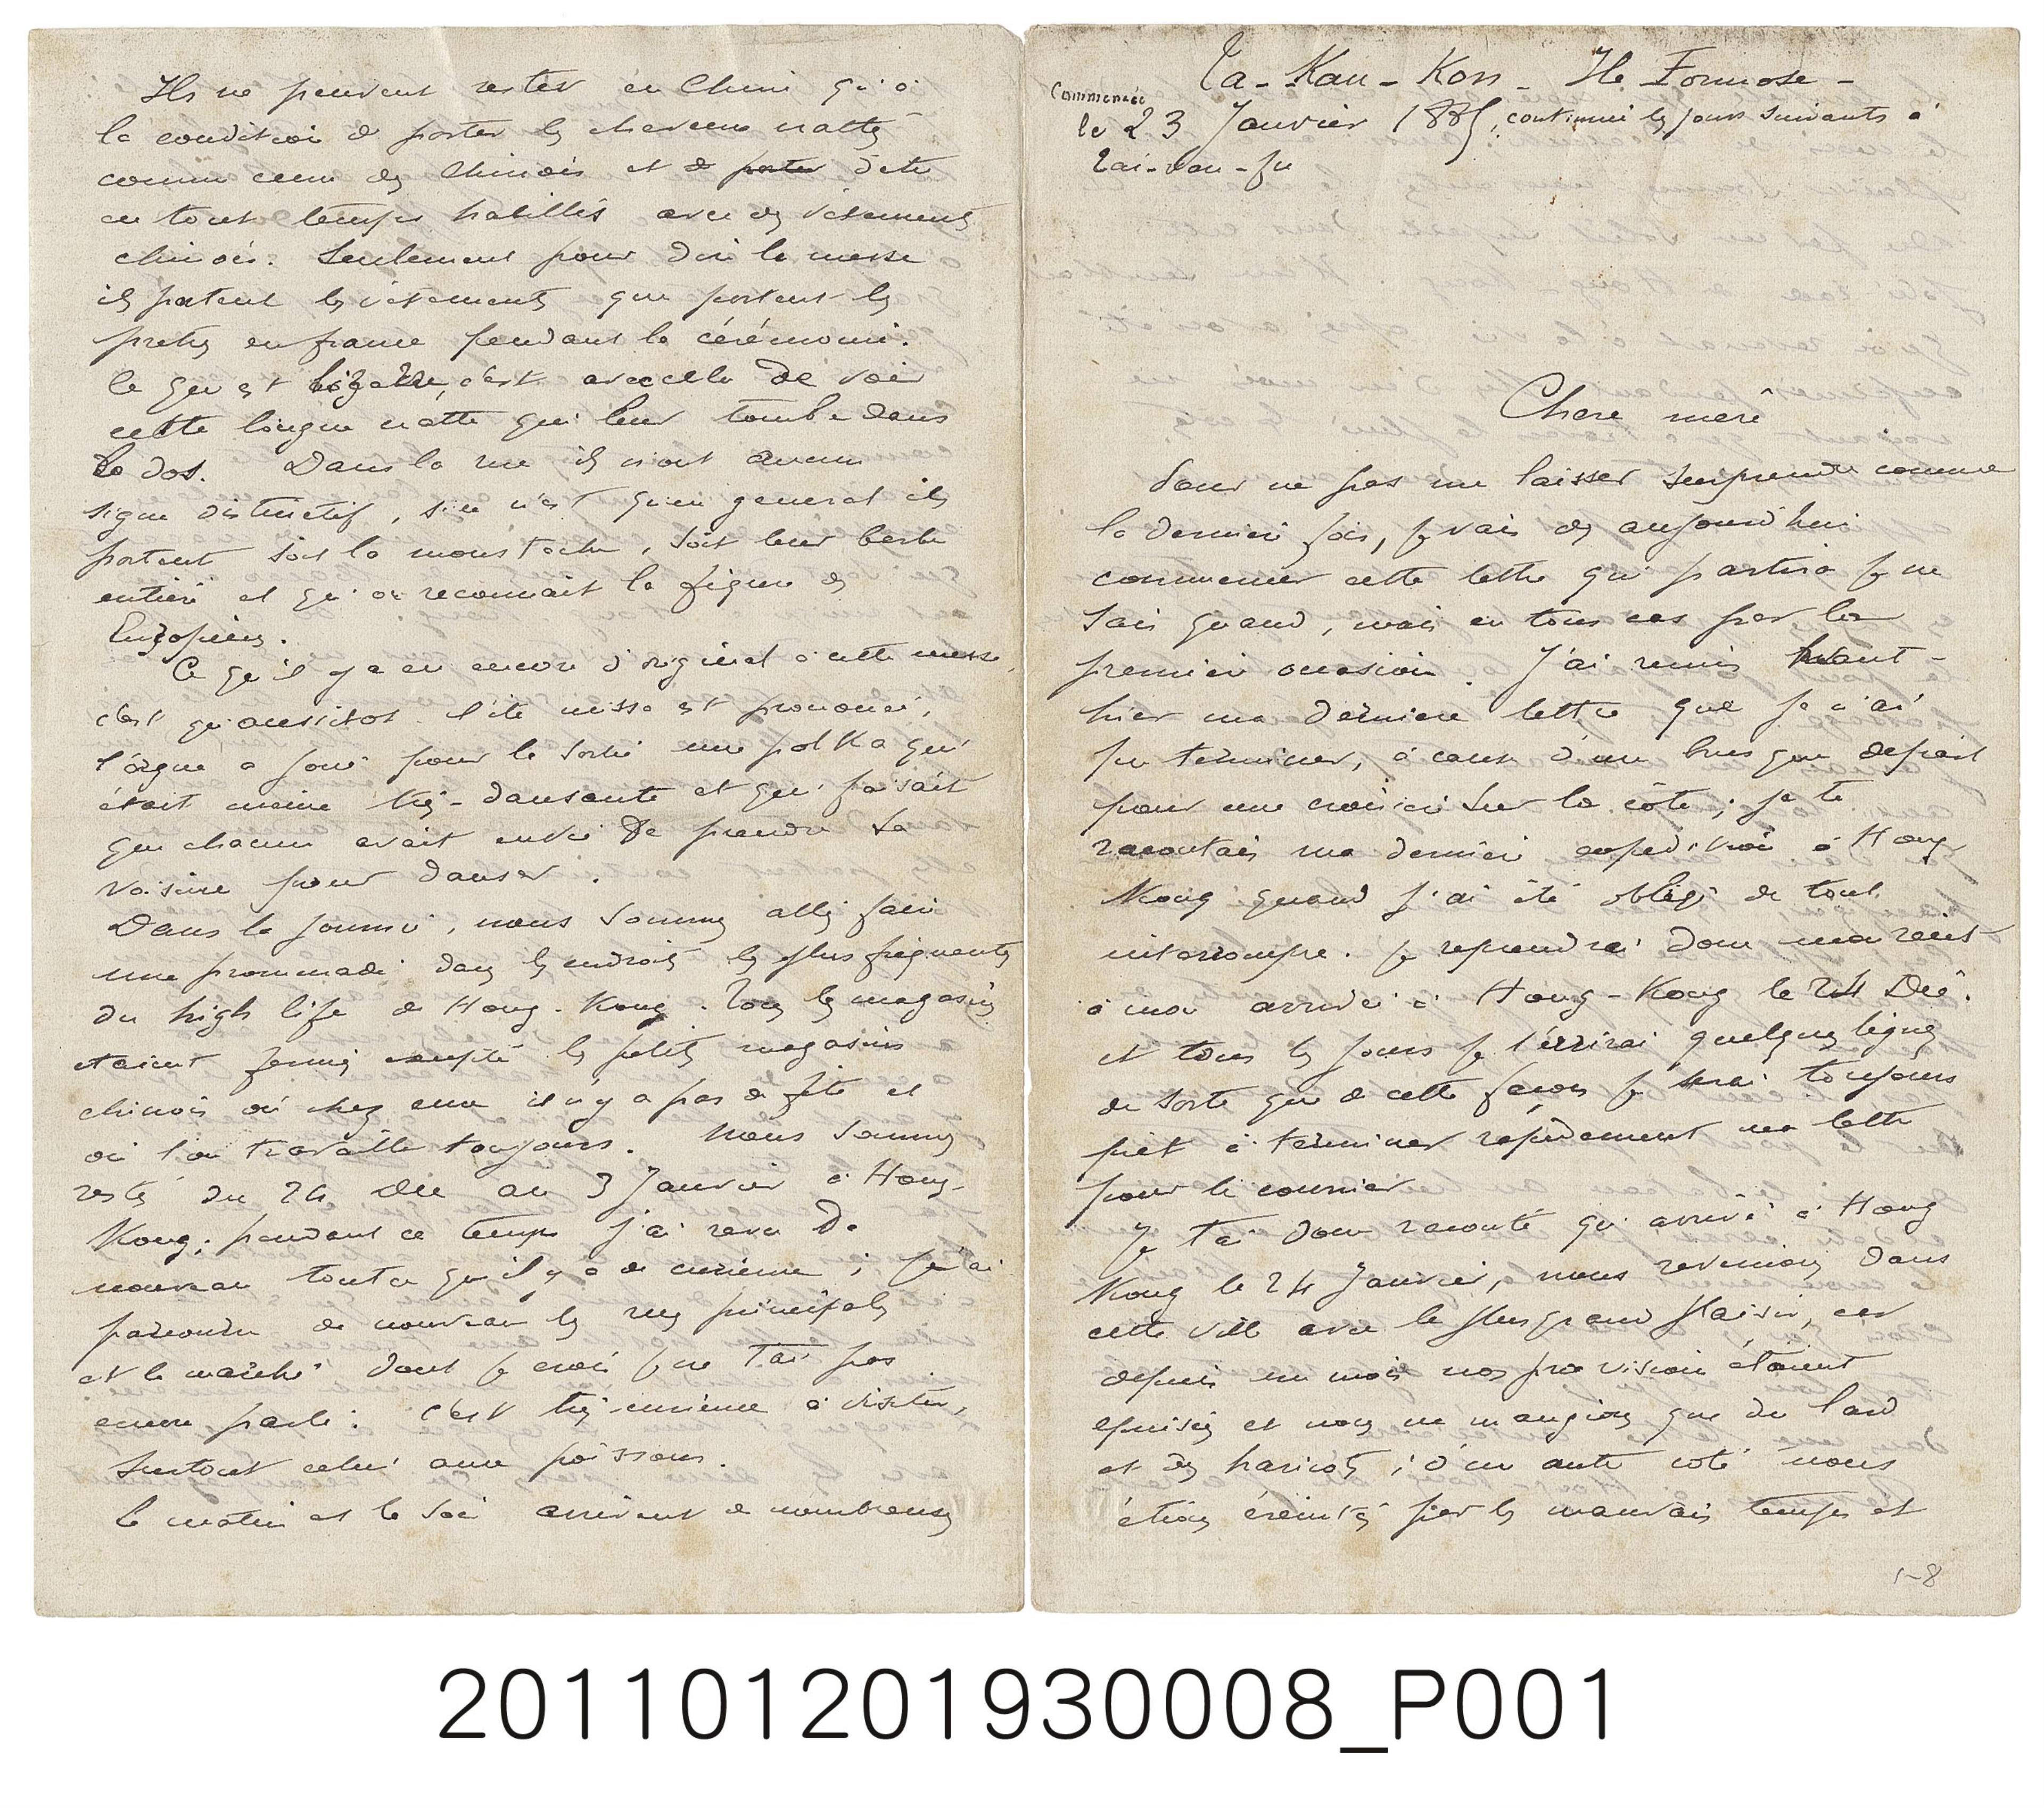 Ta-Kau-Kon - Ile Formose -
Commencée
le 23 Janvier 1885, continuée les jours suivants à
Tai-wan-fu
Chere mère
Pour ne pas me laisser surprendre comme
la dernière fois, je vais des aujourd'hui
commencer cette lettre qui partira je ne
sais quand, mais en tous cas par la
premiere occasion. J'ai remis avant-
hier ma derniere lettre que je n'ai
pu terminer, à cause d'un brusque depart
pour une croisière sur la côte; je te
racontais ma dernière expedition à Hong
Kong quand j'ai été obligé de tout
interrompre. Je reprendrai donc mon recit
à mon arrivée à Hong-Kong le 24 Déc.
et tous les jours je t'écrirai quelques lignes
de sorte que de cette façon je serai toujours
prêt à terminer rapidement ma lettre
pour le courrier.
Je t'ai donc raconté qu'arrivé à Hong
Kong le 24 Janvier, nous revenions dans
cette ville avec le plus grand plaisir, car
depuis un mois nos provisions étaient
epuisées et nous ne mangions que du lard
et des haricots; d'un autre coté nous
étions éreintés par les mauvais temps et
1-8
Ils ne peuvent rester en Chine qu'à
la condition de porter les cheveux nattés
comme ceux des Chinois et de porter d'etre
en tout temps habillés avec des vetements
chinois. Seulement pour dire la messe
ils portent les vetements que portent les
pretres en france pendant la cérémonie.
Ce qui est bizarre, c'est avec cela de voir
cette longue natte qui leur tombe dans
le dos. Dans la rue ils n'ont aucun
signe distinctif, si ce n'est qu'en general ils
portent soit la moustache, soit leur barbe
entière et qu'on reconnait la figure des
Européens.
Ce qu'il y a eu encore d'original à cette messe,
c'est qu'aussitot l'ite missa est prononcé,
l'orgue a joué pour la sortie une polka qui
était meme très-dansante et qui faisait
que chacun avait envie de prendre sa
voisine pour danser.
Dans la journée, nous sommes allés faire
une promenade dans les endroits les plus frequentés
du high life de Hong-Kong. Tous les magasins
etaient fermés excepté les petits magasins
chinois où chez eux il n'y a pas de fête et
où l'on travaille toujours. Nous sommes
restés du 24 Déc au 3 Janvier à Hong-
Kong; pendant ce temps j'ai revu de
nouveau tout ce qu'il y a de curieux; j'ai
parcouru de nouveau les rues principales
et le marché dont je crois je ne t'ai pas
encore parlé: c'est très curieux à visiter,
surtout celui aux poissons.
Le matin et le soir arrivent de nombreuses
201101201930008_P001